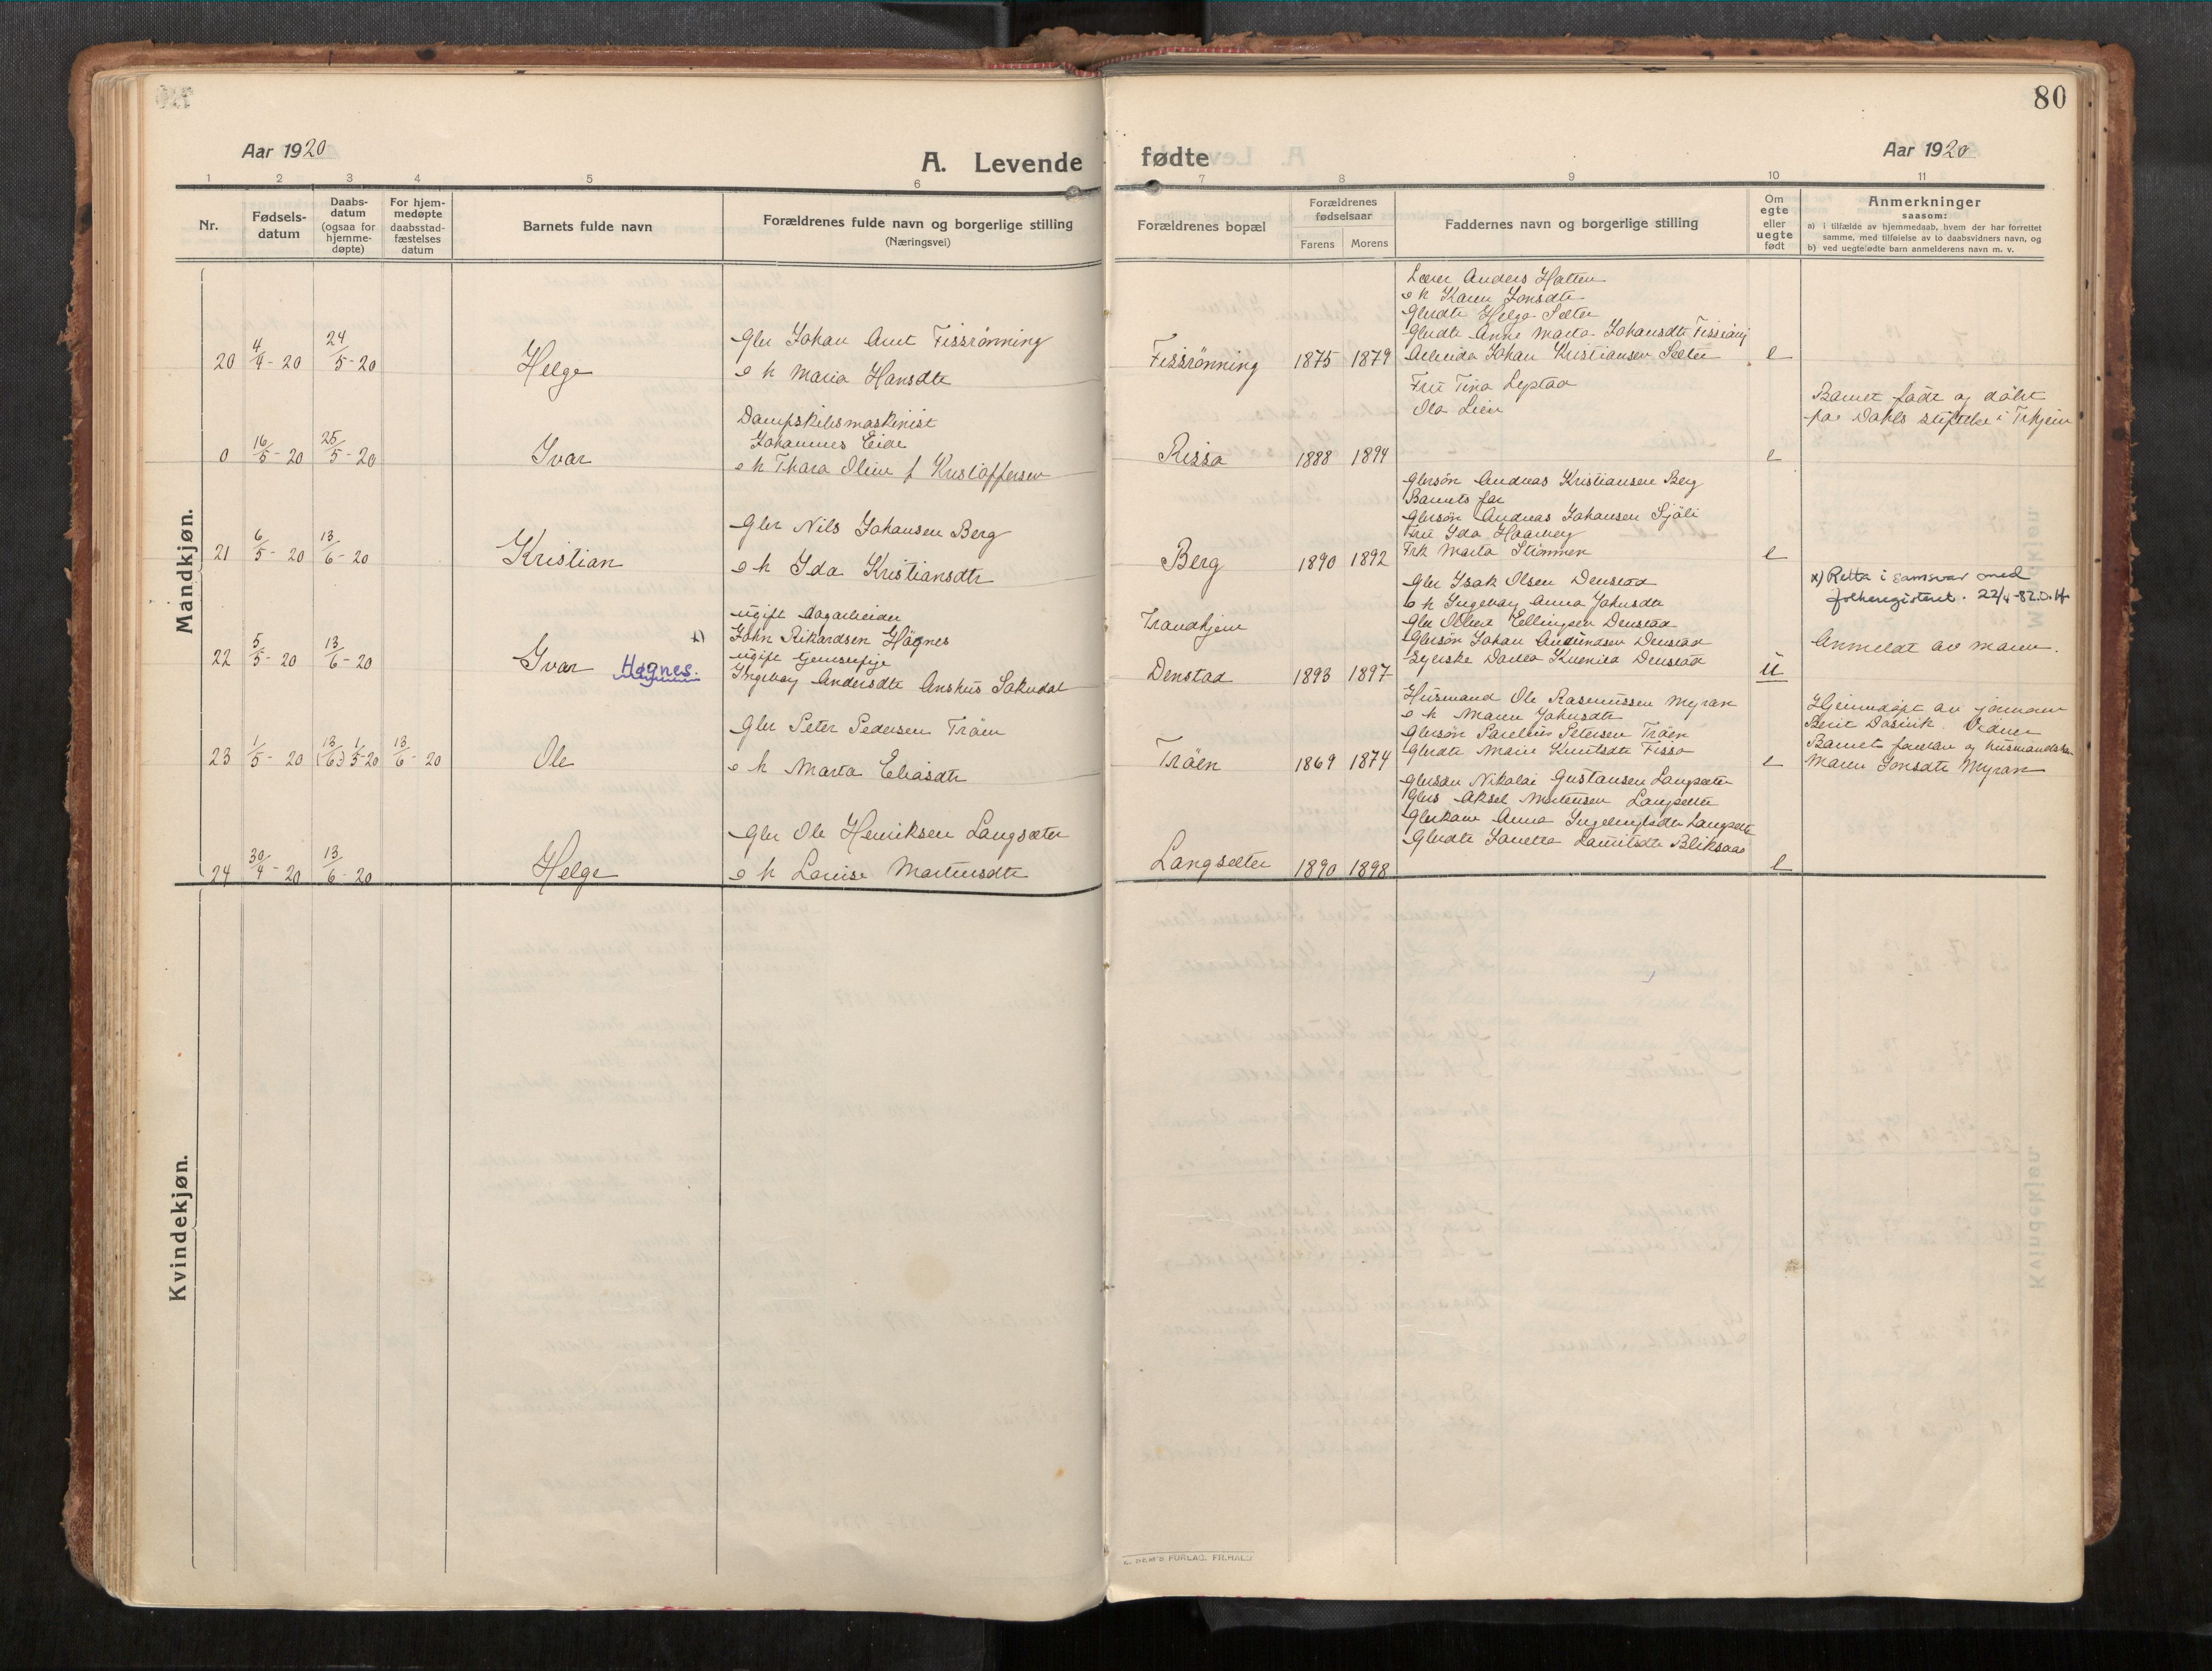 80
Aar 1920
A. Levende fødte
Aar 1920
1 2 3 4 5 6 7 8 9 10 11
Nr.
Fødsels-
datum
Daabs-
datum
(ogsaa for
hjemme-
døpte)
For hjem-
medøpte
daabsstad-
fæstelses
datum
Barnets fulde navn
Forældrenes fulde navn og borgerlige stilling
(Næringsvei)
Forældrenes bopæl
Forældrenes
fødselsaar
Farens Morens
Faddernes navn og borgerlige stilling
Om
egte
eller
uegte
født
Anmerkninger
saasom:
a) i tilfælde av hjemmedaab, hvem der har forrettet
samme, med tilføielse av to daabsvidners navn, og
b) ved uegtefødte barn anmelderens navn m. v.
Mandkjøn.
20 4/4 - 20 24/5 - 20 Helge
Gbr Johan Arnt Fissrønning
e h Maria Hansdtr
Fissrønning 1875 1879
Lærer Anders Hatten
e h Karen Jonsdtr
Gbrdtr Helga Sæter
Gbrdtr Anne Marta Johansdtr
Arbeider Johan Kristiansen Sæter
e
0 16/5 - 20 25/5 - 20 Ivar
Dampskibsmaskinist
Johannes Eide
e h Thora Oline f Kristoffersen
Rissa 1888 1894
Fru Tina
Ola Lien
e
Barnet født og døbt
paa Dahls stiftelse i Trhjem
21 6/5 - 20 13/6 - 20 Kristian
Gbr Nils Johansen Berg
e h Ida Kristiansdtr
Berg 1890 1892
Gbrsøn Andreas Kristiansen Berg
Barnets far
Gbrsøn Andreas Johansen Sjöli
Fru Ida
Frk Marta Strømmen
e
22 5/5 - 20 13/6 - 20 Ivar Høgnes.
ugift dagarbeider
x) John Rikardsen Høgnes
ugift tjenestepige
Ingeborg Andersdtr Anshus Sakndal
Trondhjem
Denstad 1893 1897
Gbr Isak Olsen Denstad
e h Ingeborg Anna Johnsdtr
Gbr Albert Ellingsen Denstad
Gbrsøn Johan Denstad
Syerske Denstad
u
x) Retta i samsvar med
folkeregisteret. 22/4-82. O.H
Anmeldt av moren.
23 1/5 - 20 (13/6) 1/5 - 20 13/6 - 20 Ole
Gbr Peter Pedersen Tröen
e h Marta Eliasdtr
Tröen 1869 1874
Husmand Ole Rasmussen Myran
e h Maren Johnsdtr
Gbrsøn Petersen Tröen
Gbrdtr Marie Knutsdtr Fissa
e
Hjemmedøpt av jormor
Berit Dasvik. Vidner
Barnets forældre og husmandskone
Maren Jonsdtr Myran
24 30/4 - 20 13/6 - 20 Helge
Gbr Ole Henriksen Langsæter
e h Louise Martensdtr
Langsæter 1890 1898
Gbrsøn Nikolai Gustavsen Langsæter
Gbrs Aksel Martensen Langsæter
Gbrkone Anna Langsæter
Gbrdtr Bliksaas
e
Kvindekjøn.
E. SEM'S FORLAG. FILHALD